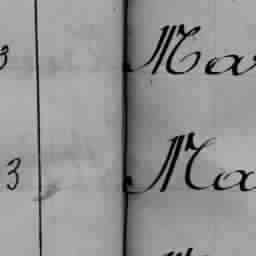 3 Ma
3 Ma